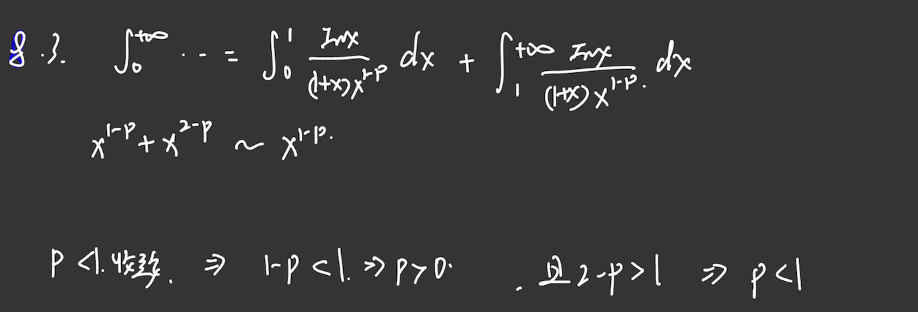 8.3. ∫₀^{+∞} ··· = ∫₀¹ lnx/((1+x)x^{1-p}) dx + ∫₁^{+∞} lnx/((1+x)x^{1-p}) dx
x^{1-p} + x^{2-p} ~ x^{1-p}.
p<1.收敛. ⇒ 1-p<1. ⇒ p>0. . 且2-p>1 ⇒ p<1